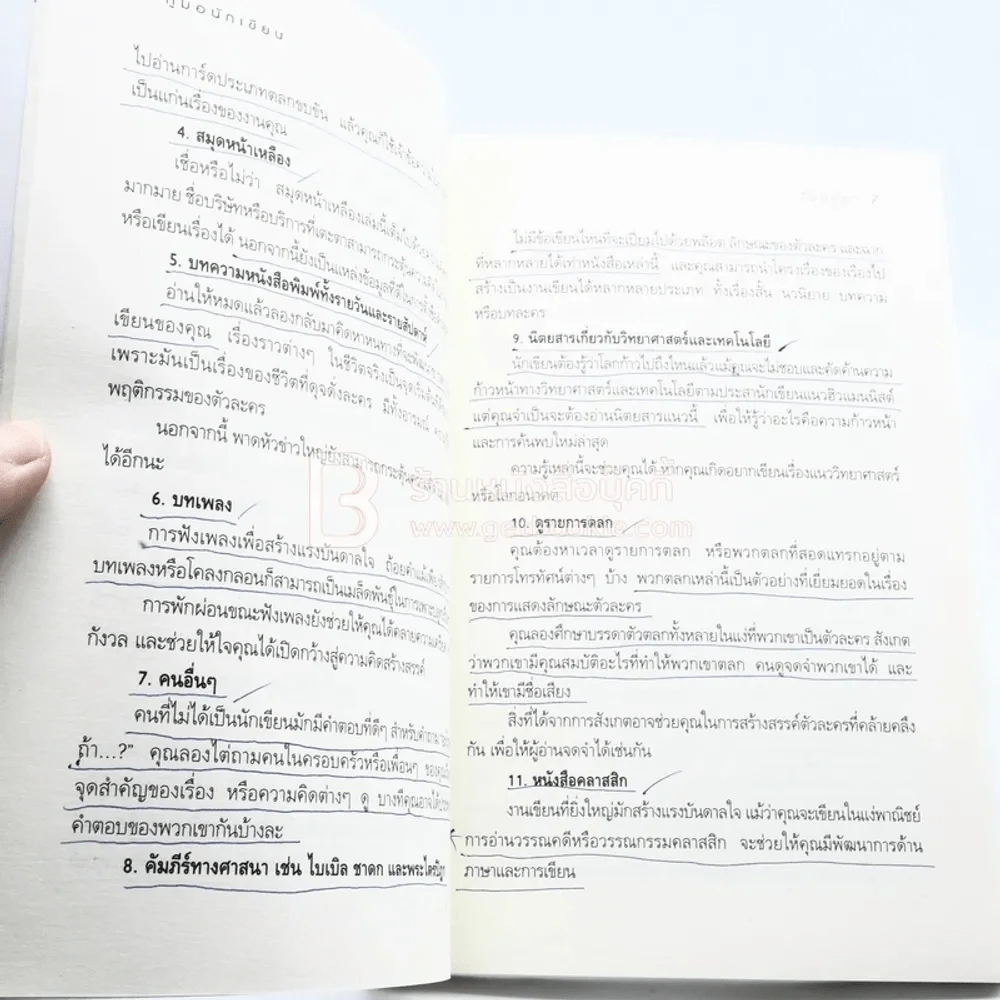 คู่มือนักเขียน
ไปอ่านการ์ดประเภทตลกขบขัน แล้วคุณก็ใช้เจ้าข้อความ
เป็นแก่นเรื่องของงานคุณ
4. สมุดหน้าเหลือง
เชื่อหรือไม่ว่า สมุดหน้าเหลืองเล่มนี้เต็มไปด้วย
มากมาย ชื่อบริษัทหรือบริการที่เตะตาสามารถกระตุ้น
หรือเขียนเรื่องได้ นอกจากนี้ยังเป็นแหล่งข้อมูลที่ดีในการ
5. บทความหนังสือพิมพ์ทั้งรายวันและรายสัปดาห์
อ่านให้หมดแล้วลองกลับมาคิดหาหนทางที่จะ
เขียนของคุณ เรื่องราวต่างๆ ในชีวิตจริงเป็นจุดเริ่มต้น
เพราะมันเป็นเรื่องของชีวิตที่ดูจดังละคร มีทั้งอารมณ์
พฤติกรรมของตัวละคร
นอกจากนี้ พาดหัวข่าวใหญ่ยังสามารถกระตุ้น
ได้อีกนะ
6. บทเพลง
การฟังเพลงเพื่อสร้างแรงบันดาลใจ ถ้อยคำแม้เพียง
บทเพลงหรือโคลงกลอนก็สามารถเป็นเมล็ดพันธุ์ในการ
การพักผ่อนขณะฟังเพลงยังช่วยให้คุณได้คลายความ
กังวล และช่วยให้ใจคุณได้เปิดกว้างสู่ความคิดสร้างสรรค์
7. คนอื่นๆ
คนที่ไม่ได้เป็นนักเขียนมักมีคำตอบที่ดีๆ สำหรับคำถาม
ถ้า...?" คุณลองไต่ถามคนในครอบครัวหรือเพื่อนๆ ของคุณ
จุดสำคัญของเรื่อง หรือความคิดต่างๆ ดู บางทีคุณอาจได้
คำตอบของพวกเขากันบ้างละ
8. คัมภีร์ทางศาสนา เช่น ไบเบิล ชาดก และพระไตรปิฎก
7
ไม่มีข้อเขียนไหนที่จะเปี่ยมไปด้วยพล็อต ลักษณะของตัวละคร และฉาก
ที่หลากหลายได้เท่าหนังสือเหล่านี้ และคุณสามารถนำโครงเรื่องของเรื่องไป
สร้างเป็นงานเขียนได้หลากหลายประเภท ทั้งเรื่องสั้น นวนิยาย บทความ
หรือบทละคร
9. นิตยสารเกี่ยวกับวิทยาศาสตร์และเทคโนโลยี
นักเขียนต้องรู้ว่าโลกก้าวไปถึงไหนแล้วแม้คุณจะไม่ชอบและคัดค้านความ
ก้าวหน้าทางวิทยาศาสตร์และเทคโนโลยีตามประสานักเขียนแนวฮิวแมนนิสต์
แต่คุณจำเป็นจะต้องอ่านนิตยสารแนวนี้ เพื่อให้รู้ว่าอะไรคือความก้าวหน้า
และการค้นพบใหม่ล่าสุด
ความรู้เหล่านี้จะช่วยคุณได้ หากคุณเกิดอยากเขียนเรื่องแนววิทยาศาสตร์
หรือโลกอนาคต
ร้านหนังสือบุคกี้
www.getbookie.com
10. ดูรายการตลก
คุณต้องหาเวลาดูรายการตลก หรือพวกตลกที่สอดแทรกอยู่ตาม
รายการโทรทัศน์ต่างๆ บ้าง พวกตลกเหล่านี้เป็นตัวอย่างที่เยี่ยมยอดในเรื่อง
ของการแสดงลักษณะตัวละคร
คุณลองศึกษาบรรดาตัวตลกทั้งหลายในแง่ที่พวกเขาเป็นตัวละคร สังเกต
ว่าพวกเขามีคุณสมบัติอะไรที่ทำให้พวกเขาตลก คนดูจดจำพวกเขาได้ และ
ทำให้เขามีชื่อเสียง
สิ่งที่ได้จากการสังเกตอาจช่วยคุณในการสร้างสรรค์ตัวละครที่คล้ายคลึง
กัน เพื่อให้ผู้อ่านจดจำได้เช่นกัน
11. หนังสือคลาสสิก
งานเขียนที่ยิ่งใหญ่มักสร้างแรงบันดาลใจ แม้ว่าคุณจะเขียนในแง่พาณิชย์
การอ่านวรรณคดีหรือวรรณกรรมคลาสสิก จะช่วยให้คุณมีพัฒนาการด้าน
ภาษาและการเขียน